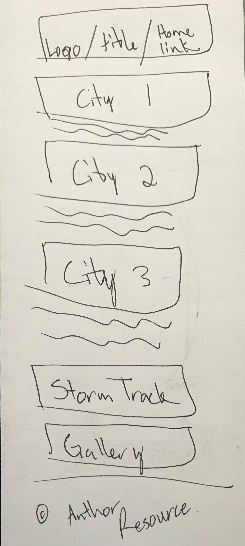 Logo/title/Home link
City 1
City 2
City 3
Storm Track
Gallery
© Author Resource